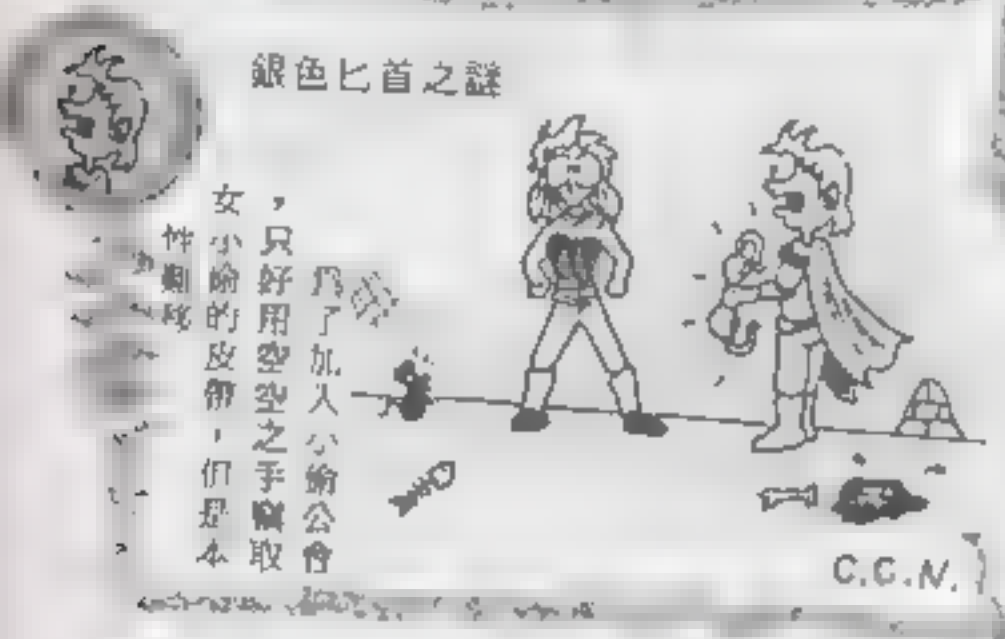 銀色匕首之謎
為了加入小偷公會
，只好用空空之手竊取
女小偷的皮帶，但是本
性難移
C.C.N.